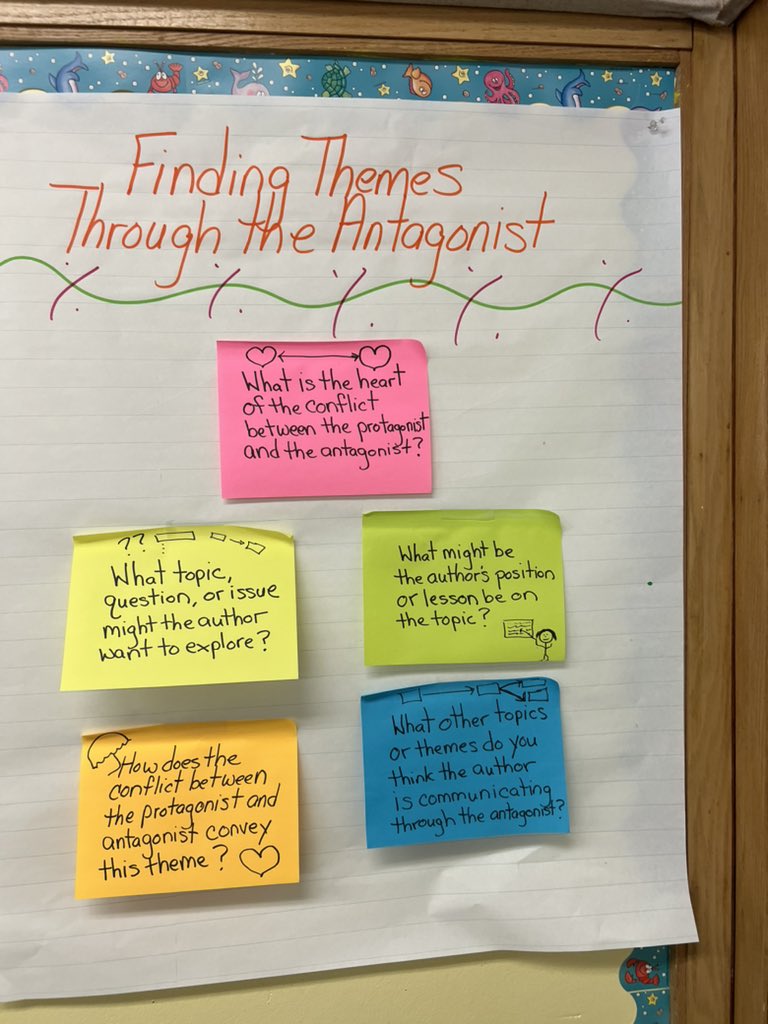 Finding Themes
Through the Antagonist
What is the heart
of the conflict
between the protagonist
and the antagonist?
??
What topic,
question, or issue
might the author
want to explore?
What might be
the author's position
or lesson be on
the topic?
How does the
conflict between
the protagonist and
antagonist convey
this theme?
What other topics
or themes do you
think the author
is communicating
through the antagonist?